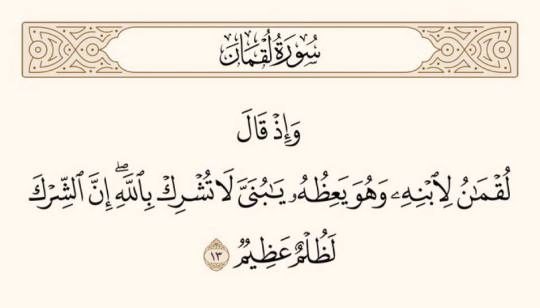 سُورَةُ لُقۡمَانَ
وَإِذۡ قَالَ
لُقۡمَٰنُ لِٱبۡنِهِۦ وَهُوَ يَعِظُهُۥ يَٰبُنَيَّ لَا تُشۡرِكۡ بِٱللَّهِۖ إِنَّ ٱلشِّرۡكَ
لَظُلۡمٌ عَظِيمٞ ١٣